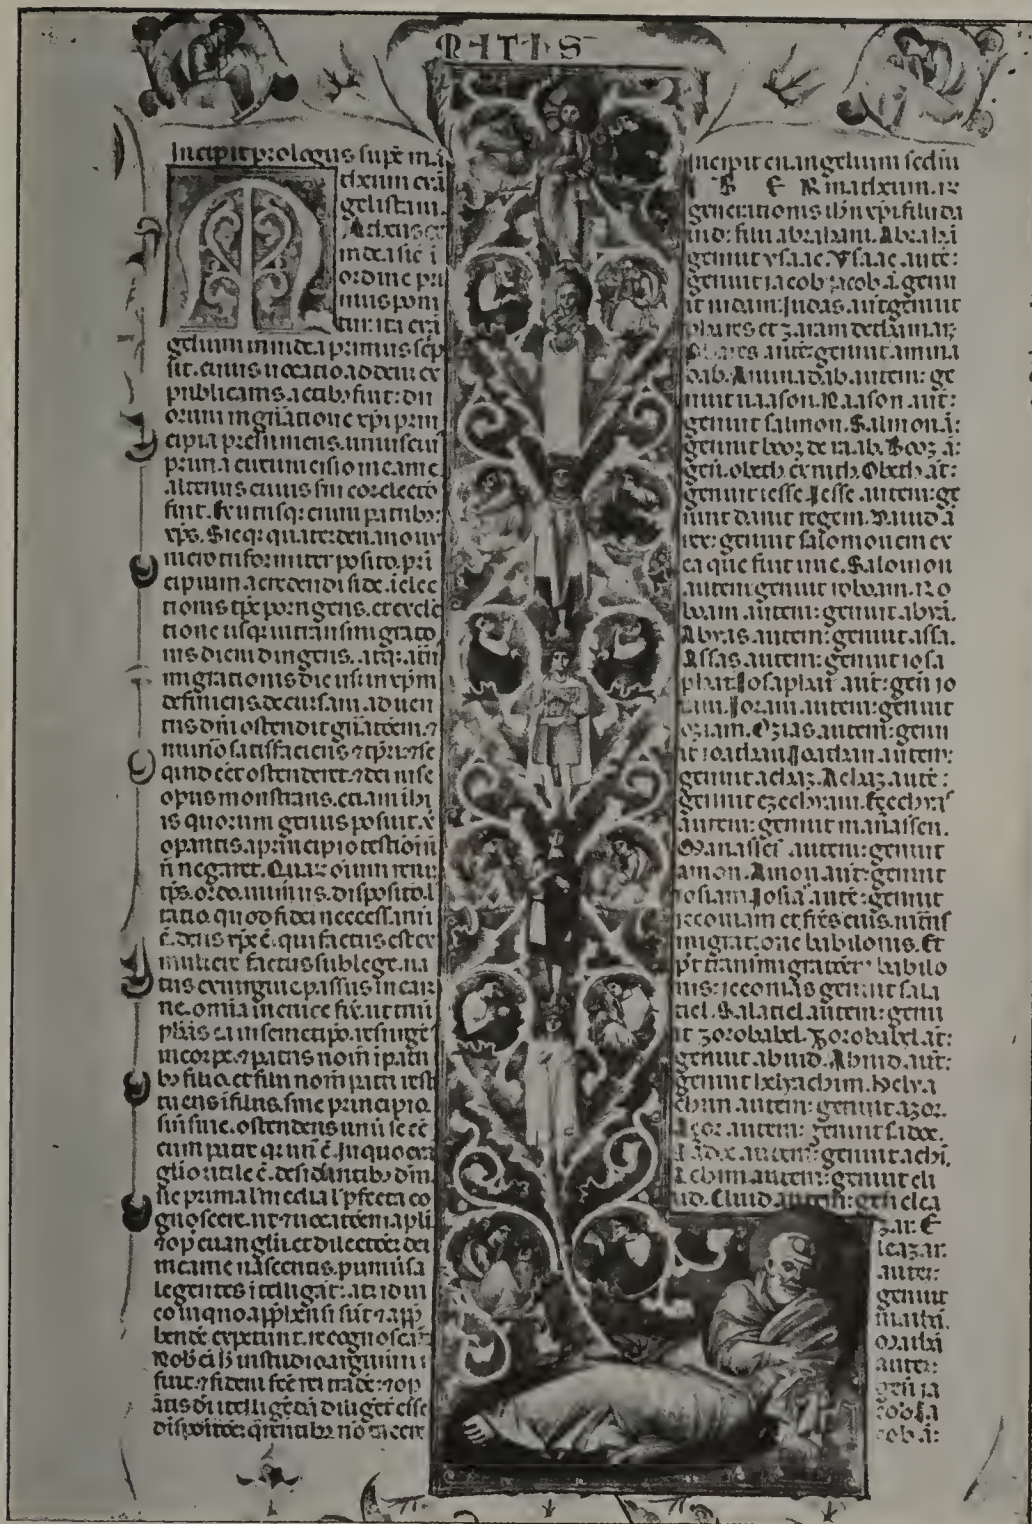 Incipit prologus sup̄ ma
theum euā
gelistam.
Matheus ex
iudea sic̄ i
ordine pri
mus poni
tur: ita euā
gelium in iudea primus sc̄p
sit. cuius uocatio ad deum ex
publicanis actibȝ fuit: duo
orum in gn̄atione xp̄i prin
cipia presumens. unius cui
prima circumcisio in carne
alterius cuius sm̄ cor electo
fuit. Ex utrisqȝ enim patribȝ
xp̄s. Sicqȝ quaterdenario nu
mero triformiter posito. pri
cipium a credendi fide. i elec
tionis tp̄e porrigens. et ex elec
tione usqȝ in transmigratio
nis diem dirigens. atqȝ a tr̄i
migrationis die usqȝ in xp̄m
definiens. decursam aduen
tus dn̄i ostendit gn̄ationem. ⁊
numero satisfaciens ⁊ tp̄ri: ⁊ se
quod eēt ostenderet. ⁊ dei in se
opus monstrans. etiam in hi
is quorum genus posuit. x̄
operantis a principio testīom
n̄ negaret. Quarȝ omnium rerū
tp̄s. ordo. numerus. dispositio l
ratio. quod fidei necessarium
ē. deus xp̄c ē. qui factus est ex
muliere factus sub lege. na
tus ex uirgine. passus in car
ne. omīa in cruce fixit. ut triū
phās ea in semetip̄o. resurgēs
in corpe. ⁊ patris nom̄ i patri
bȝ filio. et filii nom̄ patri resti
tuens i filiis. sine principio.
sin̄ fine. ostendens unū se eē
cum patre qȝ un̄ ē. In quo euā
glio utile ē. desidātibȝ dm̄.
sic prima l̄ media l̄ pfecta co
gnoscere. ut ⁊ uocatōem apli
⁊ op̄ euanglii. et dilectōȝ dei
in carne nascentis. p uniūsa
legentes itelligāt: atqȝ id in
eo in quo app̄hensi sūt ⁊ app̄
hendē expetunt. recognoscāt
Nobȝ ēi h̄ in studio argumēti
fuit. ⁊ fidem fc̄e rei tradē: ⁊ op
ātis dī itelligēdā diligēt esse
dispositōȝ. q̄rentibȝ nō tacere
MATHS
Incipit euangelium scd̄m
B E R matheum. iȝ
generationis ih̄u xp̄i filii da
uid: filii abraham. Abrahā
genuit ysaac. Ysaac autē:
genuit iacob. iacob ā genu
it iudam. Iudas. aut̄ genuit
phares et zaram de thamar.
Phares autē: genuit amina
dab. Aminadab. autem: ge
nuit naason. Naason. aut̄:
genuit salmon. Salmon ā:
genuit booz de raab. Booz ā:
gen̄. obeth ex ruth. Obeth āt:
genuit iesse. Iesse. autem: ge
nuit dauit regem. Dauid ā
rex: genuit salomonem ex
ea que fuit urie. Salomon
autem genuit roboam. Ro
boam. autem: genuit. abyā.
Abyas. autem: genuit assa.
Assas. autem: genuit iosa
phat. Iosaphat aut̄: gen̄ io
ram. Ioram. autem: genuit
oziam. Ozias. autem: genu
it ioathan. Ioathan. autem:
genuit achaz. Achaz. autē:
genuit ezechyam. Ezechyas
autem: genuit manassen.
Manasses autem: genuit
amon. Amon aut̄: genuit
iosiam. Iosias autē: genuit
ieconiam et fr̄es eius. in trn̄s
migratione babilonis. Et
pt̄ transmigratōēȝ babilo
nis: ieconias genuit sala
tiel. Salatiel autem: genu
it zorobabel. Zorobabel āt:
genuit abiud. Abiud. aut̄:
genuit helyachim. Helya
chim. autem: genuit azor.
Azor. autem: genuit sadoc.
Sadoc. autem: genuit achī.
Achim. autem: genuit eli
ud. Eliud. autem: gen̄ elea
zar. E
leazar.
autē:
genuit
mathā.
Mathā
autē:
gen̄ ia
cob. Ia
cob ā: